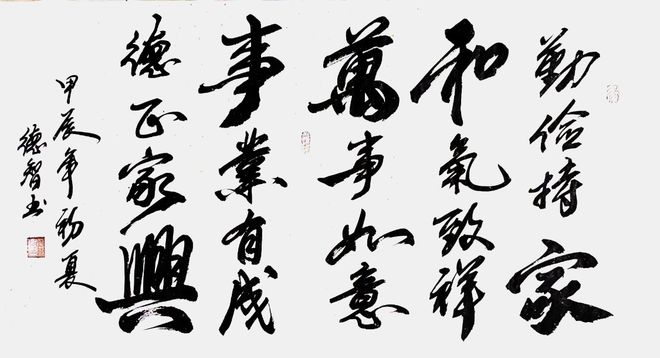 勤儉持家
和氣致祥
萬事如意
事業有成
德正家興
甲辰年初夏
德智书